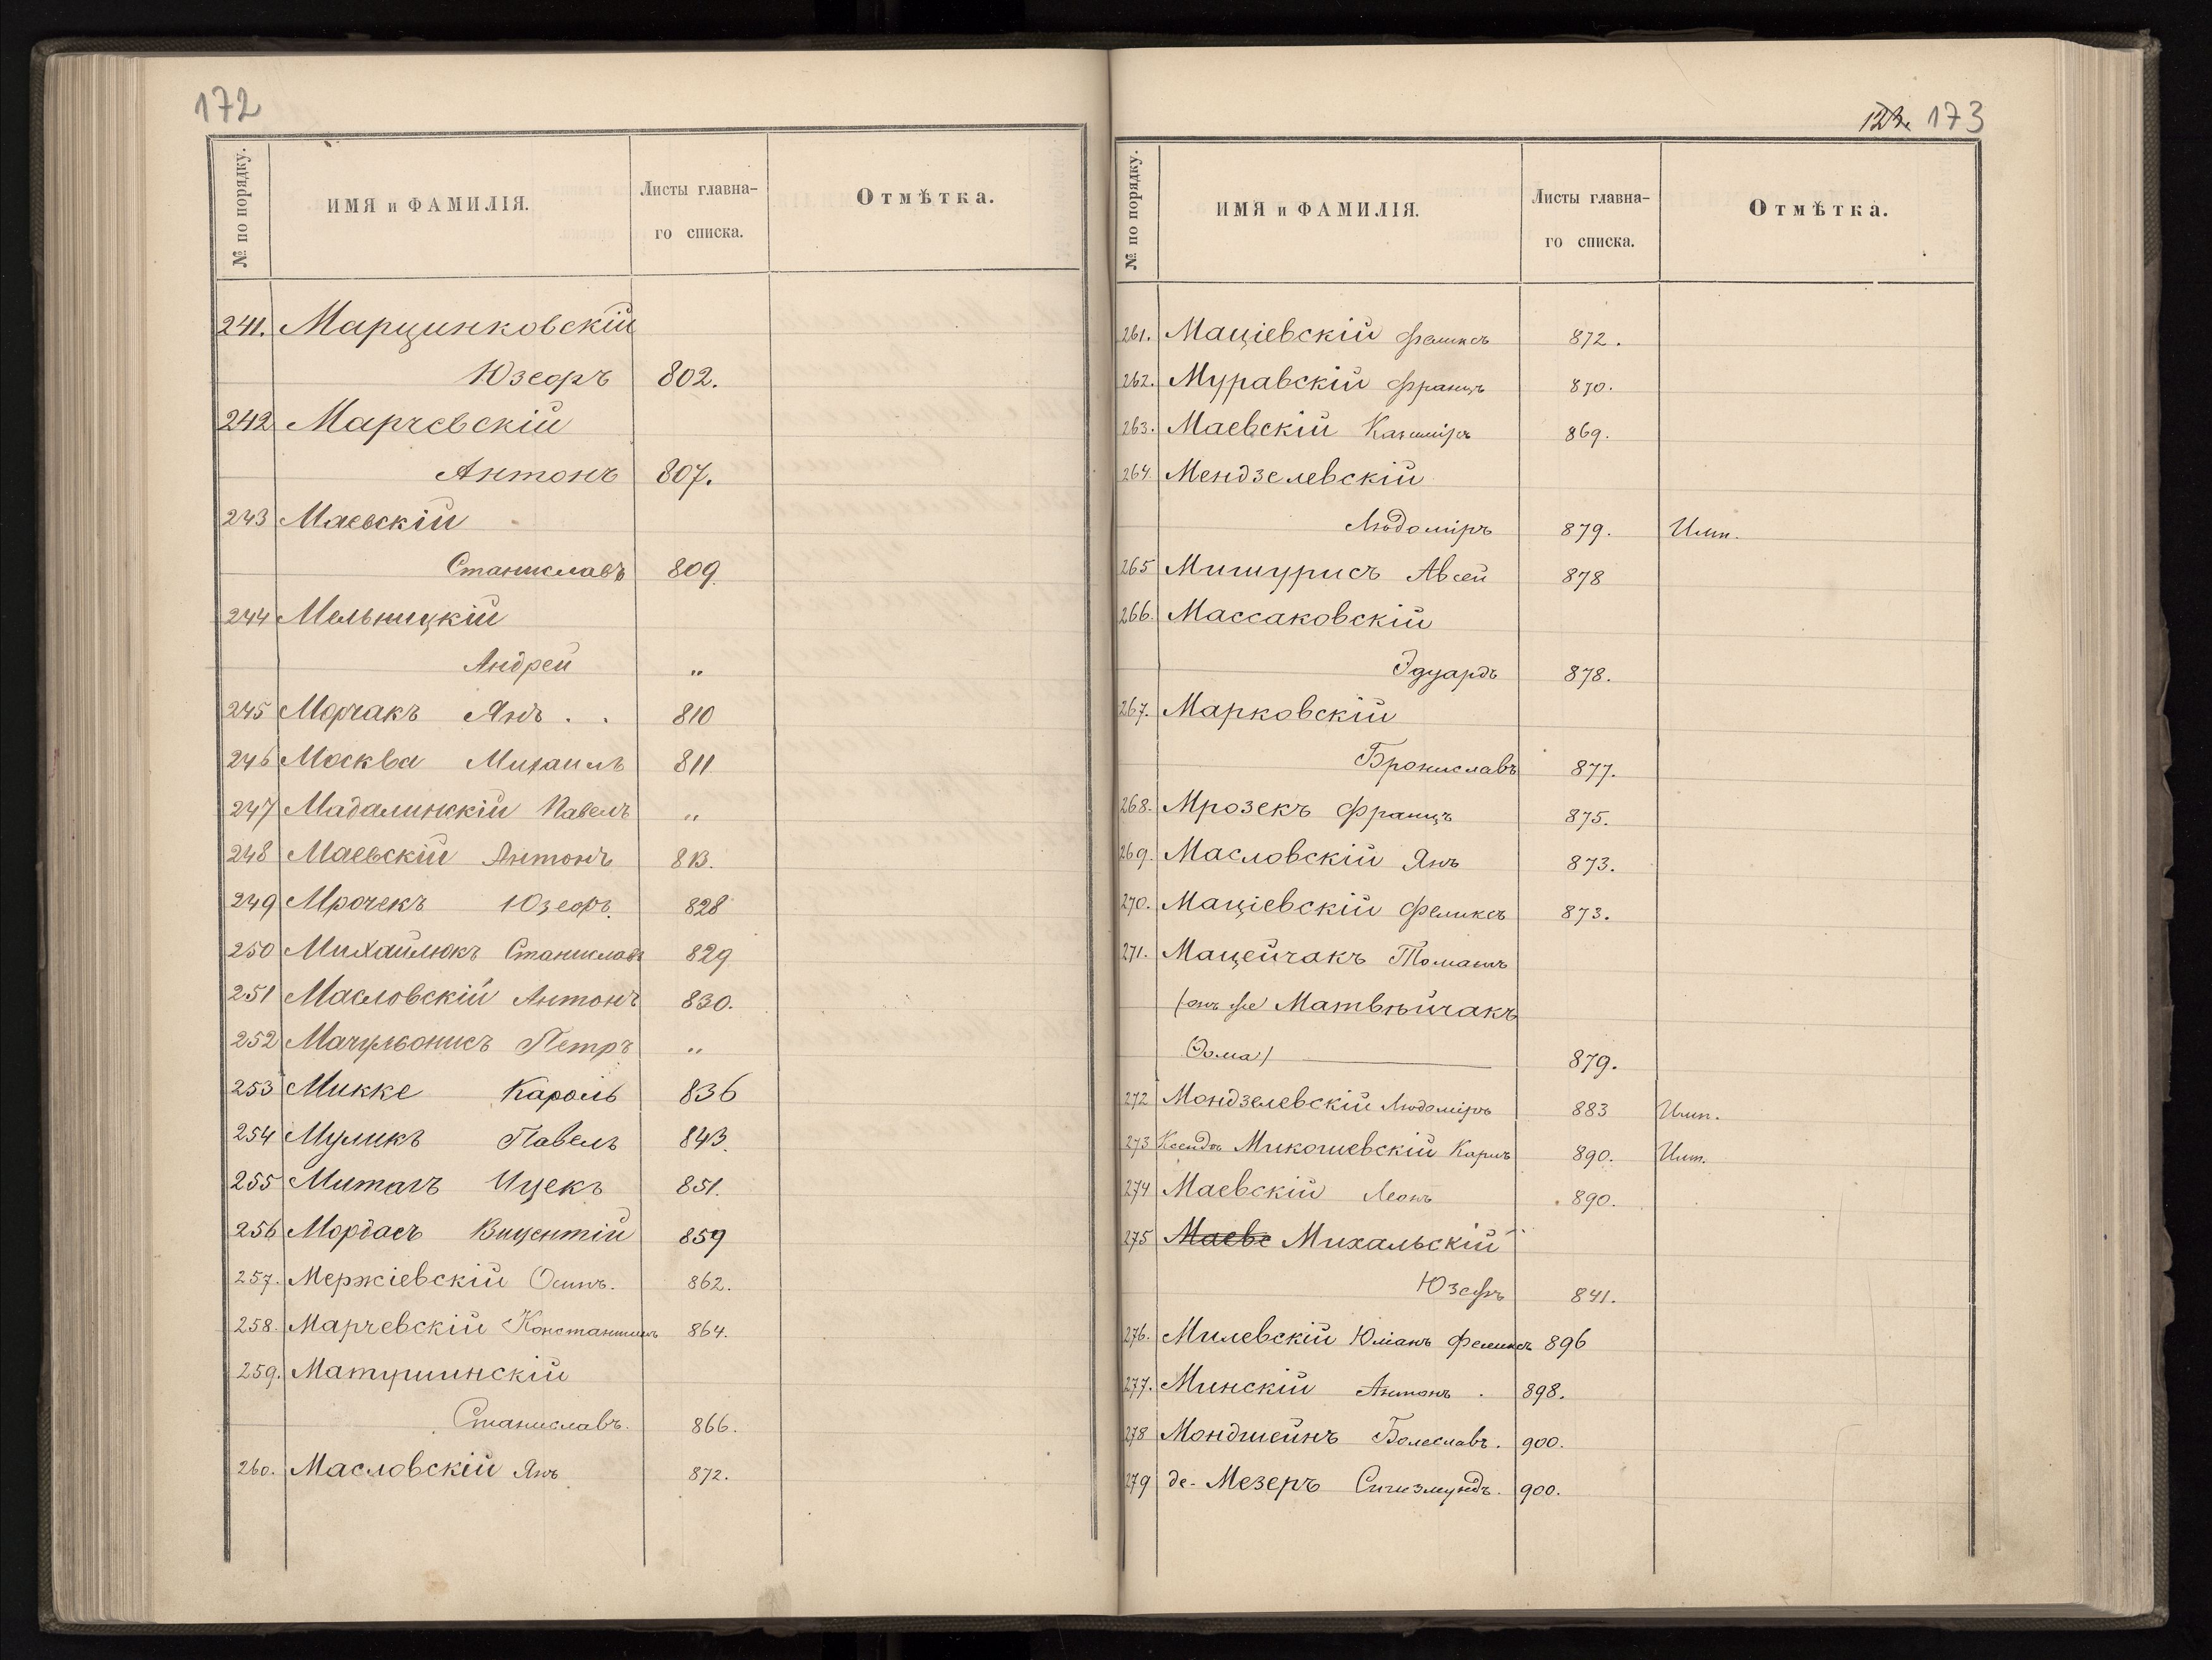 172
№ по порядку.
ИМЯ и ФАМИЛІЯ.
Листы главна-
го списка.
Отмѣтка.
241. Марцинковскій
Юзефъ 802.
242 Марчевскій
Антонъ 807.
243 Маевскій
Станиславъ 809.
244 Мельницкій
Андрей „
245 Морчакъ Янъ . . 810
246 Москва Михаилъ 811
247 Мадалинскій Павелъ „
248 Маевскій Антонъ 813.
249 Мрочекъ Юзефъ. 828
250 Михайлюкъ Станиславъ 829
251 Масловскій Антонъ 830.
252 Мачульонисъ Петръ „
253 Микке Кароль 836
254 Муликъ Павелъ 843.
255 Митагъ Ицекъ 851.
256 Мордасъ Викентій 859
257. Мержіевскій Осипъ. 862.
258. Марчевскій Константинъ 864.
259. Матушинскій
Станиславъ. 866.
260. Масловскій Янъ 872.
123. 173
№ по порядку.
ИМЯ и ФАМИЛІЯ.
Листы главна-
го списка.
Отмѣтка.
261. Маціевскій Феликсъ 872.
262. Муравскій Францъ 870.
263. Маевскій Казиміръ 869.
264. Мендзелевскій
Людоміръ 879.
265 Мишурисъ Авсей 878
266. Массаковскій
Эдуардъ 878.
267. Марковскій
Брониславъ 877.
268. Мрозекъ Францъ 875.
269. Масловскій Янъ 873.
270. Маціевскій Феликсъ 873.
271. Мацейчакъ Томашъ
(онъ же Матвѣйчакъ
Ѳома) 879.
272 Мондзелевскій Людоміръ 883
273 Ксендзъ Микошевскій Карлъ 890.
274 Маевскій Леонъ 890.
275 Маевс Михальскій
Юзефъ 841.
276. Милевскій Юліанъ Феликсъ 896
277. Минскій Антонъ . 898.
278 Мондшейнъ Болеславъ. 900.
279 де-Мезеръ Сигизмундъ. 900.